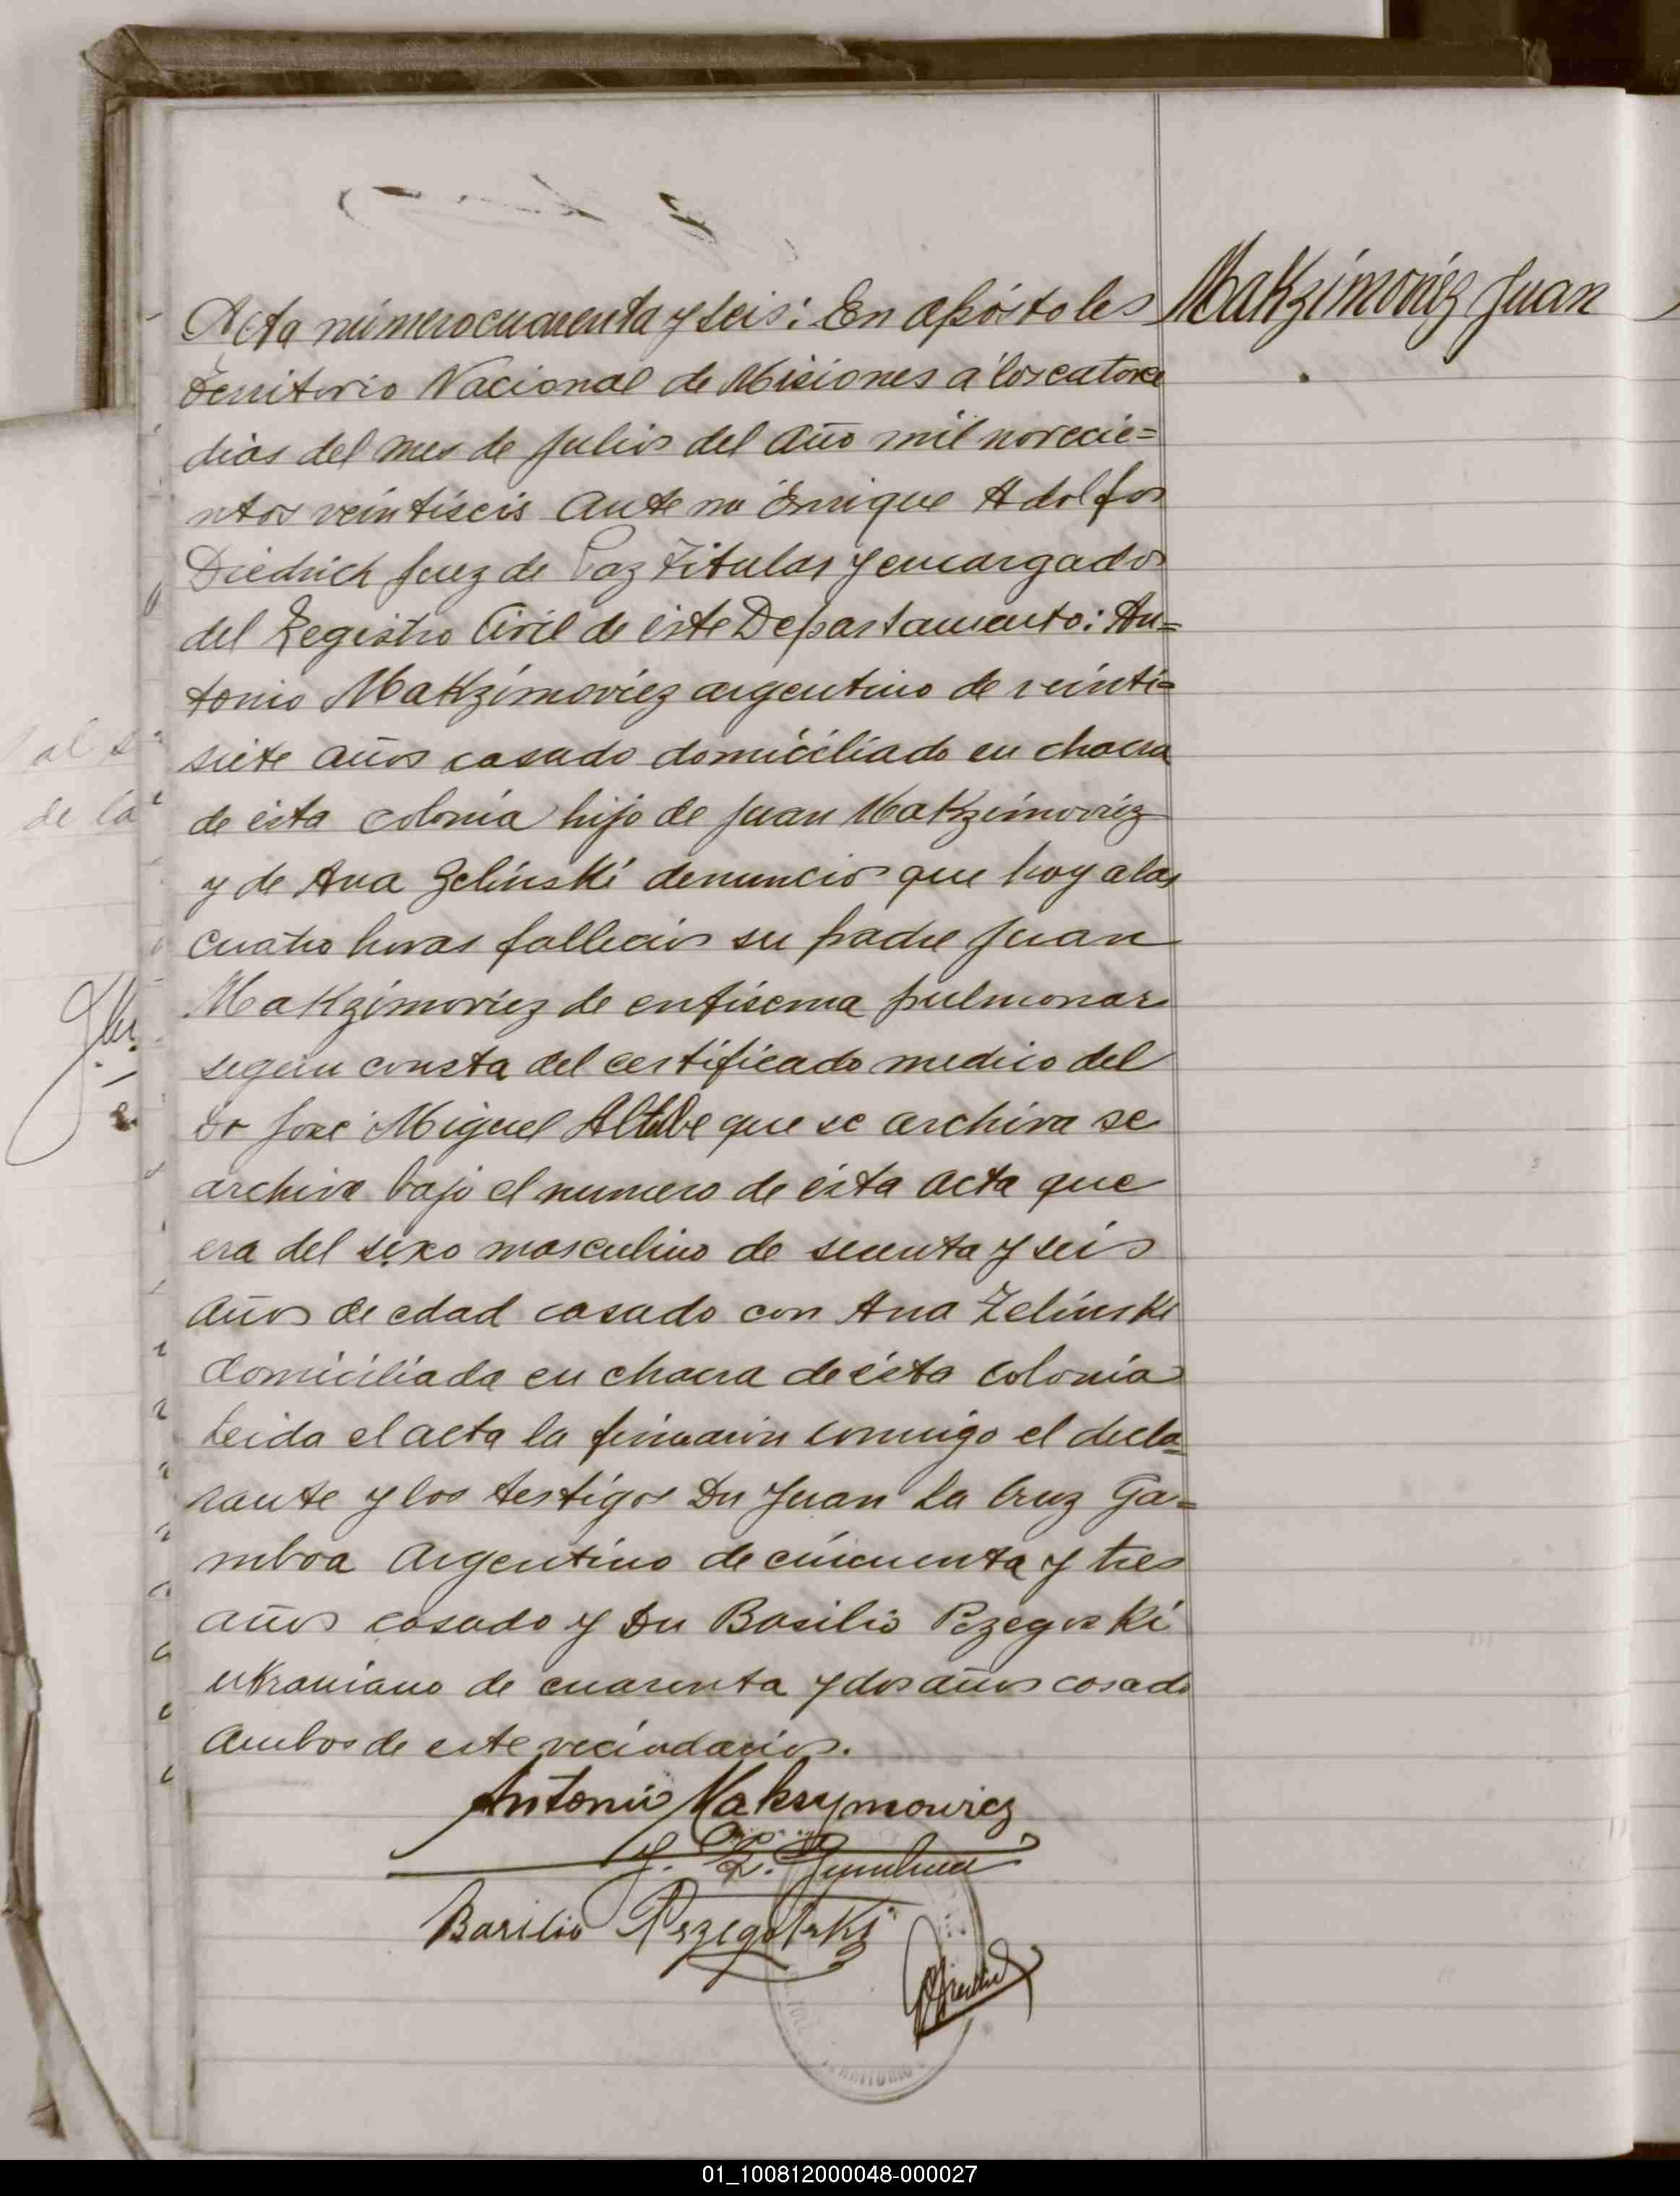 Makzimoviez Juan
Acta número cuarenta y seis: En Apóstoles
Territorio Nacional de Misiones a los catorce
dias del mes de Julio del año mil novecie=
ntos veintiseis ante mi Enrique Adolfo
Diedrich Juez de Paz Titular y encargado
del Registro Civil de éste Departamento: An=
tonio Makzimoviez argentino de veinti=
siete años casado domiciliado en chacra
de ésta colonia hijo de Juan Makzimoviez
y de Ana Zelinski denuncio que hoy a las
cuatro horas fallecio su padre Juan
Makzimoviez de enfisema pulmonar
segun consta del certificado medico del
Dr José Miguel que se archiva se
archiva bajo el numero de ésta acta que
era del sexo masculino de y seis
años de edad casado con Ana Zelinski
domiciliada en chacra de ésta colonia
Leida el acta la firmaron conmigo el decla=
rante y los testigos Dn Juan La Cruz Ga=
mboa Argentino de cincuenta y tres
años casado y Dn Basilio Pezegoski
ukraniano de cuarenta y dos años casado
Ambos de este vecindario.
Antonio Maksymowicz
J. L.
Basilio
al
de la
TERRITORIO
01_100812000048-000027